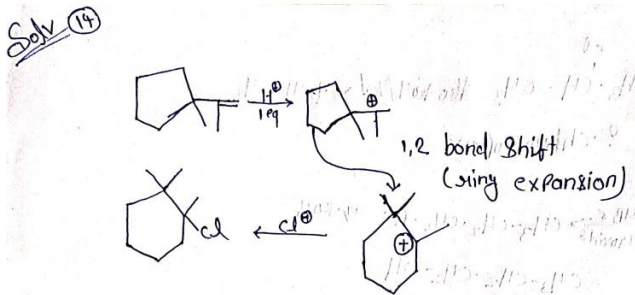 Solv 14
H⊕
1eq
⊕
1,2 bond shift
(ring expansion)
+
Cl
Cl⊕